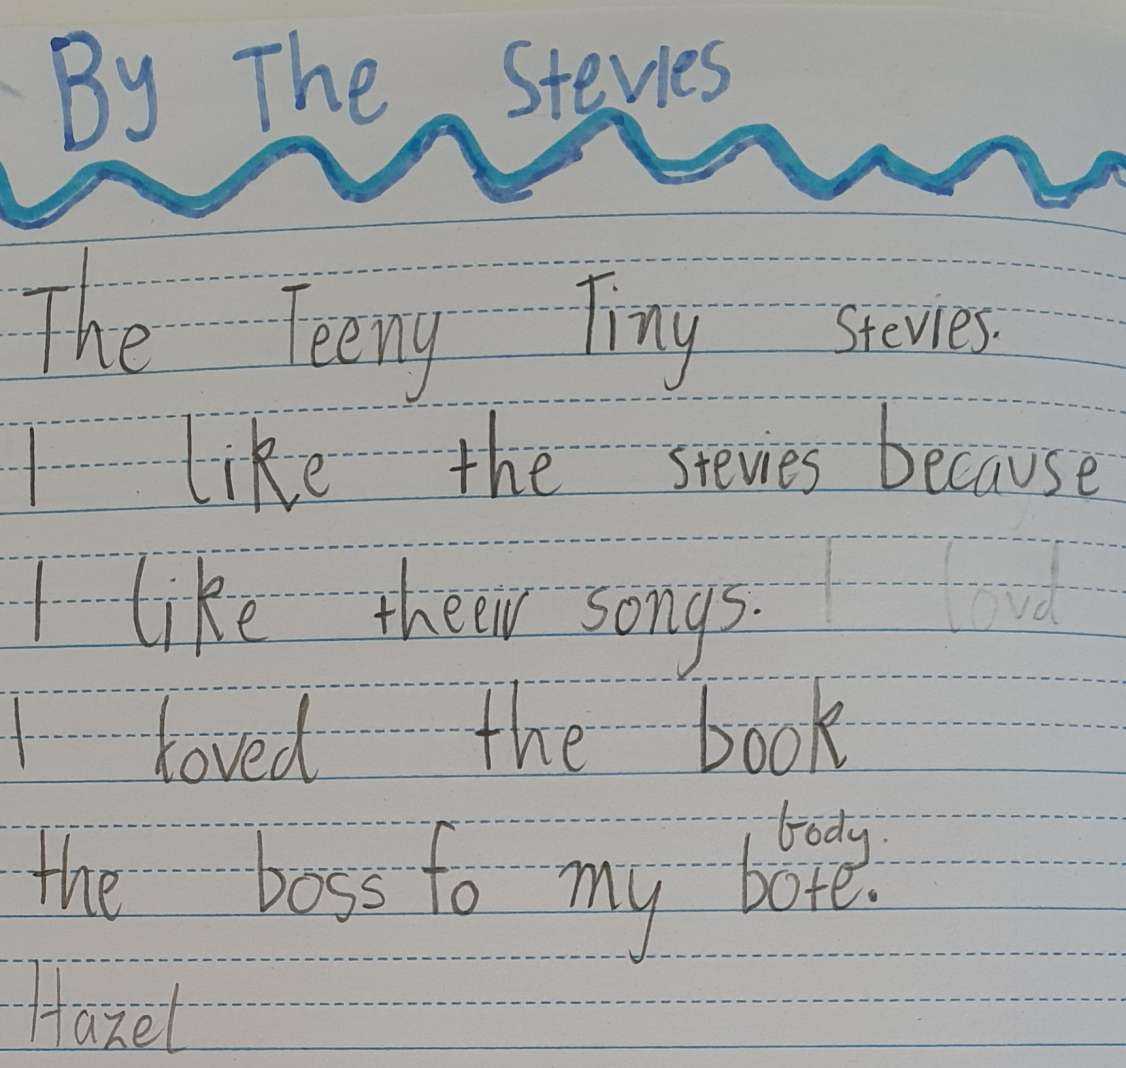 By The Stevies
The Teeny Tiny Stevies.
I like the stevies because
I like theeir songs. I lovd
I loved the book
body.
the boss fo my bote.
Hazel